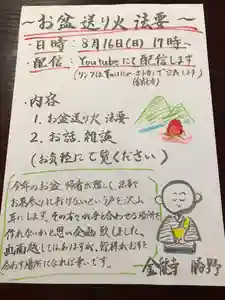 ～お盆送り火 法要～
・日時：8月16日(日) 17時～
・配信：Youtubeにて配信します
(リンクは
で公表します)
・内容
1. お盆送り火法要
2. お話、雑談
(お気軽にご覧ください)
今年のお盆、帰省が難しく、法事や
お墓参りに行けないという声を沢山
耳にします。その方々の手を合わせる場所を
作れないかと思い企画致しました。
画面越しではありますが、皆様がお手を
合わす場所になれば幸いです。
金能寺